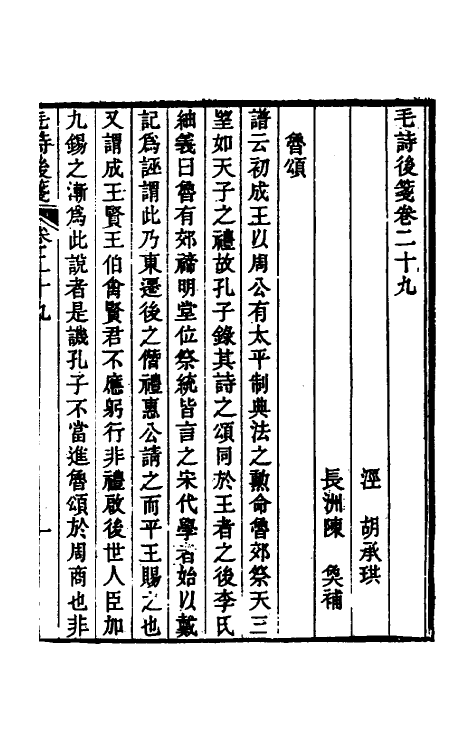 毛詩後箋卷二十九
涇　胡承珙
長洲陳　奐補
魯頌
譜云初成王以周公有太平制典法之勲命魯郊祭天三
望如天子之禮故孔子錄其詩之頌同於王者之後李氏
紬義曰魯有郊禘明堂位祭統皆言之宋代學者始以戴
記為誣謂此乃東遷後之僭禮惠公請之而平王賜之也
又謂成王賢王伯禽賢君不應躬行非禮啟後世人臣加
九錫之漸為此說者是譏孔子不當進魯頌於周商也非
毛詩後箋　卷二十九　一